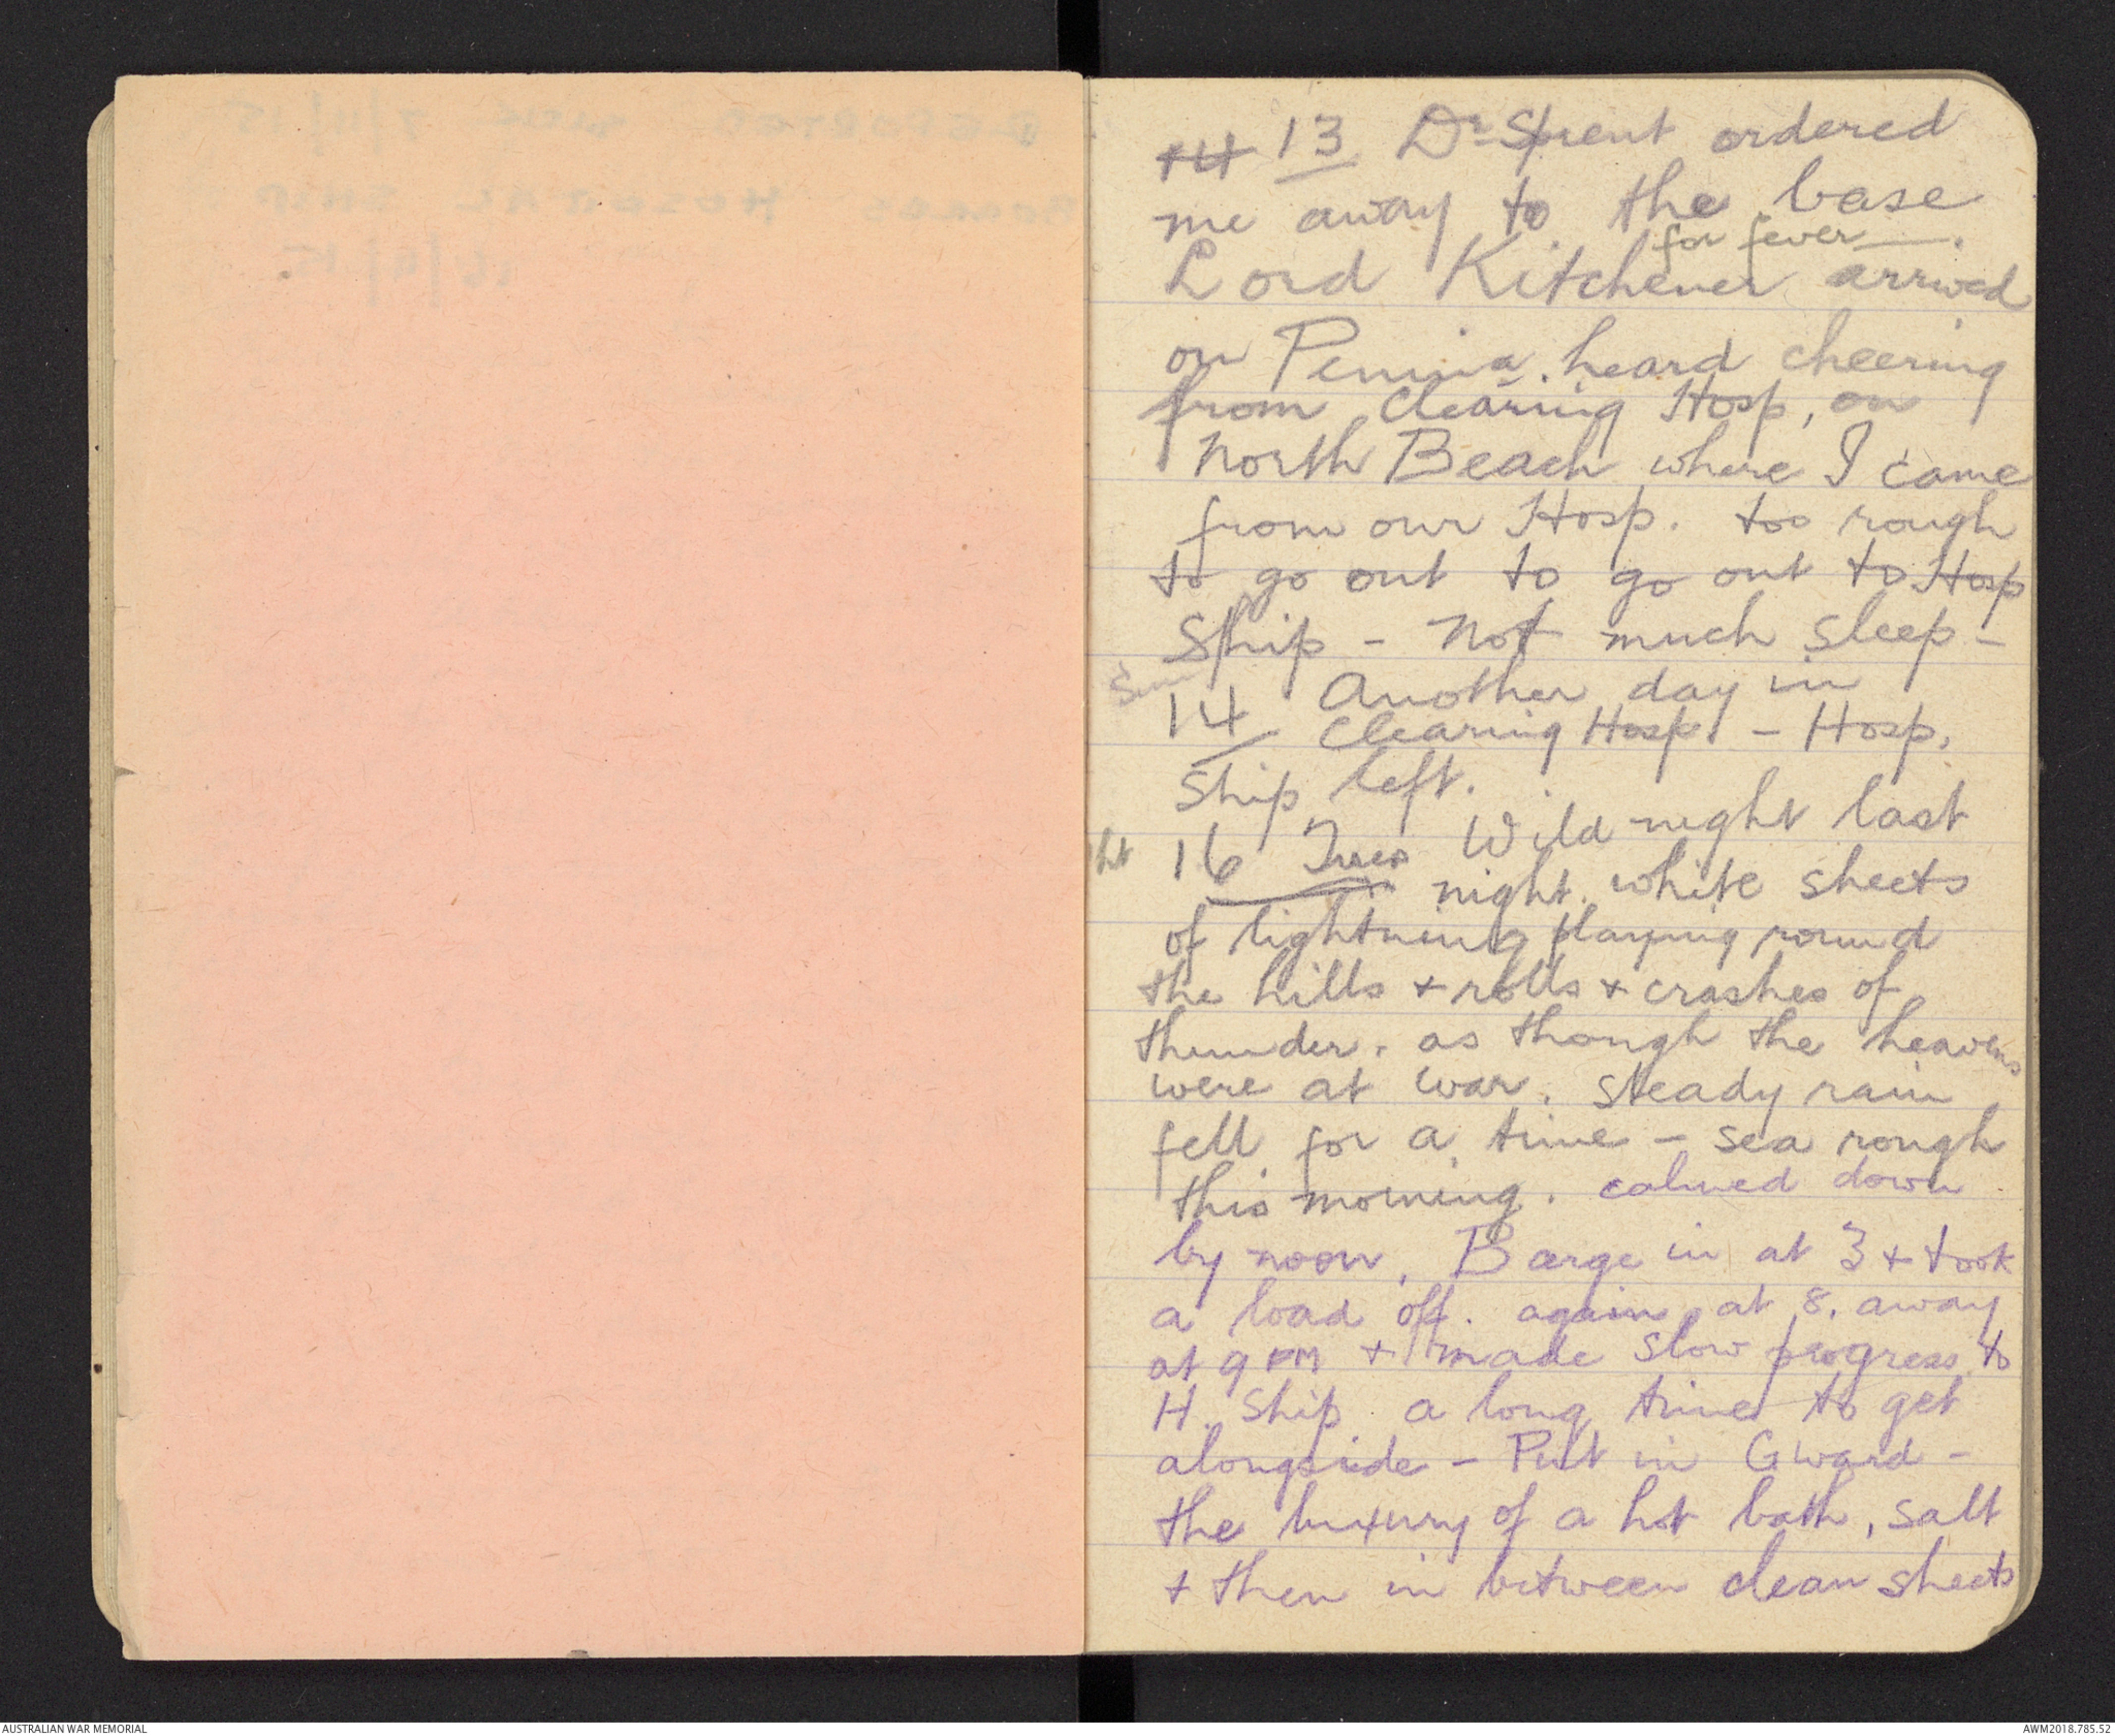 14 13 Dr Sprent ordered
me away to the base
for fever.
Lord Kitchener arrived
on Penina. heard cheering
from Clearing Hosp, on
North Beach where I came
from our Hosp. too rough
to go out to go out to Hosp
Ship - Not much sleep -
Sun
14 Another day in
Clearing Hosp. - Hosp,
Ship left.
16 Tues Wild night last
night. white sheets
of lightning playing round
the hills + rolls + crashes of
thunder. as though the heavens
were at war. steady rain
fell for a time - sea rough
this morning. calmed down
by noon. Barge in at 3 + took
a load off. again at 8. away
at 9 PM + made slow progress to
H. Ship a long time to get
alongside - Put in G ward -
the luxury of a hot bath, salt
+ then in between clean sheets
AUSTRALIAN WAR MEMORIAL
AWM2018.785.52